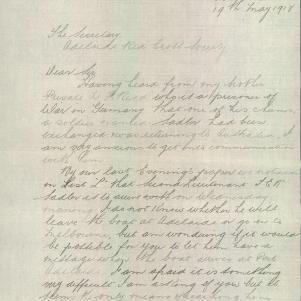 19th May 1918
The Secretary
Adelaide Red Cross Society
Dear Sir
Having heard from my brother
Private
War in Germany that one of his chums,
a soldier named Sadler had been
exchanged & was returning to Australia, I
am very anxious to get into communication
with him.
In our last Evening's paper we noticed
that Second Lieutenant
Sadler is to arrive on Wednesday
morning. I do not know whether he will
leave the boat at Adelaide or go on to
Melbourne, but am wondering if it would
be possible for you to let him have a
message when the boat arrives at Port
Adelaide. I am afraid it is something
very difficult I am asking of you but it
seems the only means of reaching him